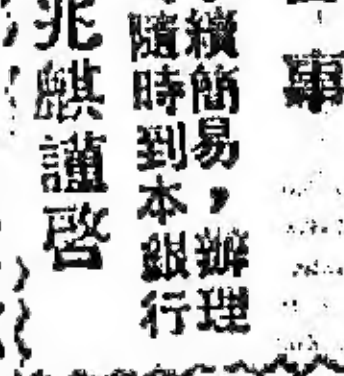 事
續簡易，辦理
隨時到本銀行
兆麒謹啓